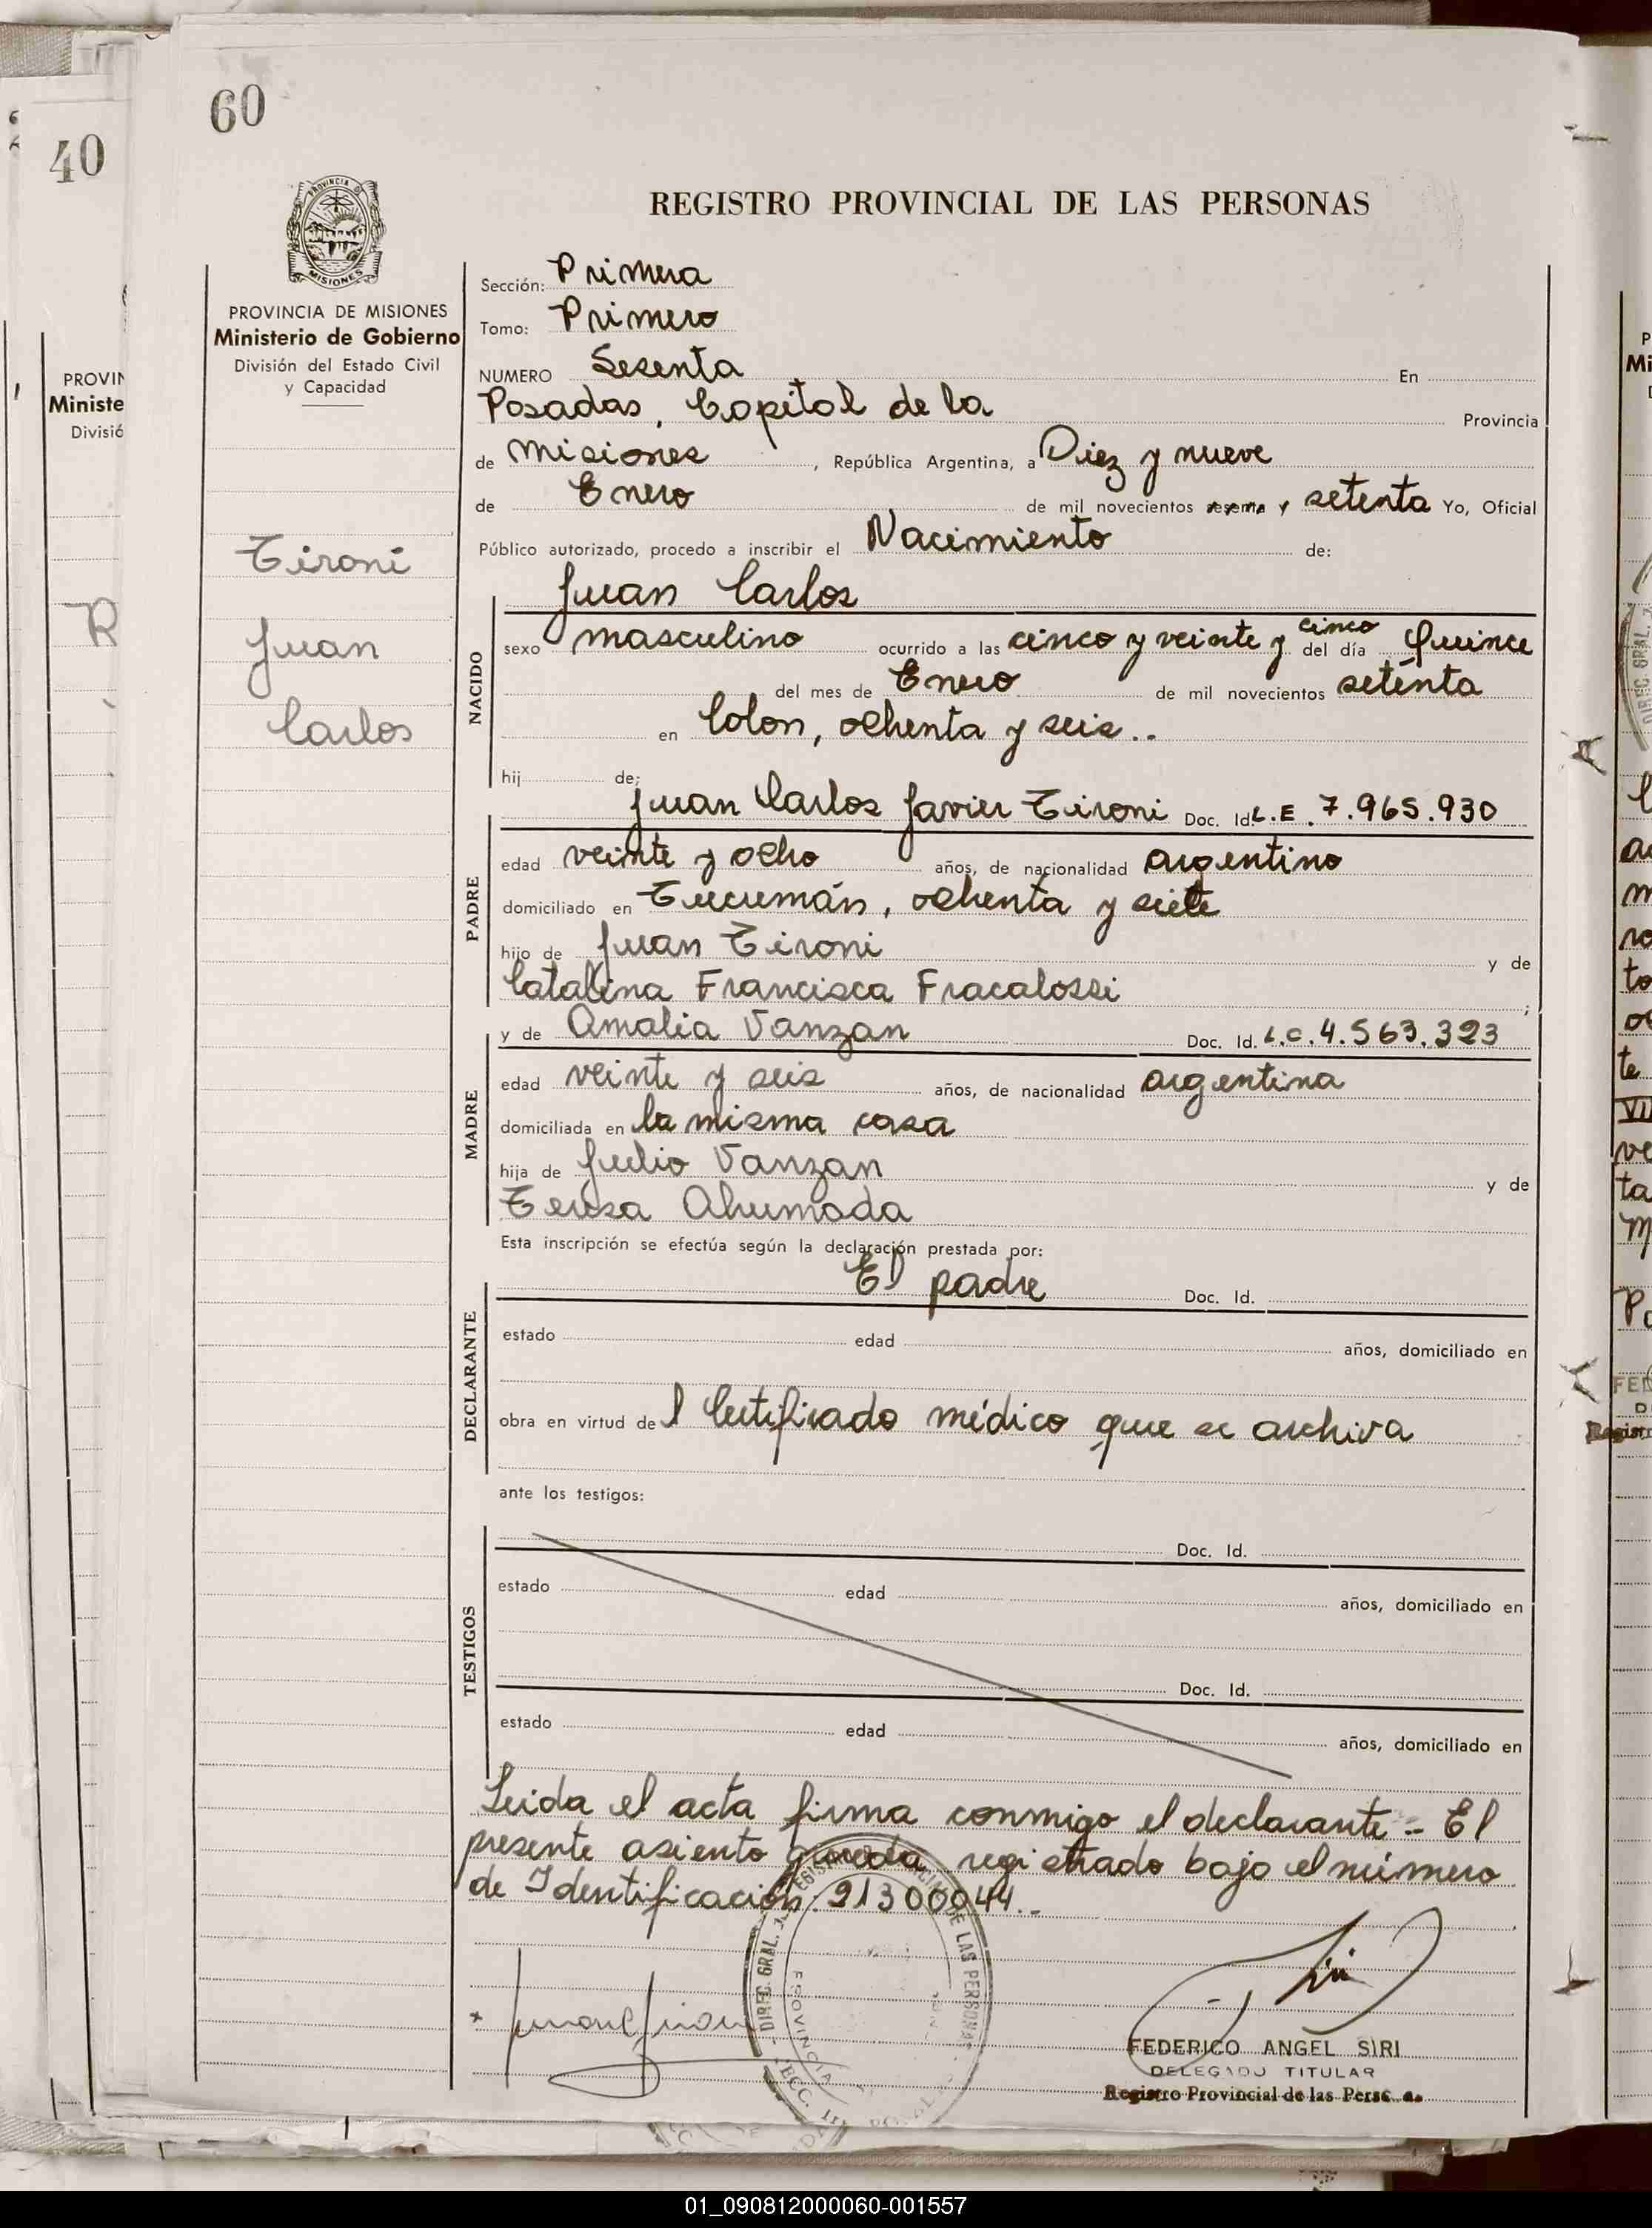 60
40
REGISTRO PROVINCIAL DE LAS PERSONAS
MISIONES
PROVINCIA DE MISIONES
Ministerio de Gobierno
División del Estado Civil
y Capacidad
Tironi
Juan
Carlos
Sección: Primera
Tomo: Primero
NUMERO Sesenta En
Posadas, Capital de la Provincia
de Misiones, República Argentina, a Diez y nueve
de Enero de mil novecientos sesenta y setenta Yo, Oficial
Público autorizado, procedo a inscribir el Nacimiento de:
Juan Carlos
NACIDO
sexo masculino ocurrido a las cinco y veinte y cinco del día Quince
del mes de Enero de mil novecientos setenta
en Colon, ochenta y seis..
hij de:
Juan Carlos Javier Tironi Doc. Id. L.E. 7.965.930
PADRE
edad veinte y ocho años, de nacionalidad argentino
domiciliado en Tucumán, ochenta y siete
hijo de Juan Tironi y de
Catalina Francisca Fracalossi;
y de Amalia Vanzan Doc. Id. L.C. 4.563.323
MADRE
edad veinte y seis años, de nacionalidad argentina
domiciliada en la misma casa
hija de Julio Vanzan y de
Teresa Ahumada
Esta inscripción se efectúa según la declaración prestada por:
El padre Doc. Id.
DECLARANTE
estado edad años, domiciliado en
obra en virtud del Certificado médico que se archiva
ante los testigos:
Doc. Id.
TESTIGOS
estado edad años, domiciliado en
Doc. Id.
estado edad años, domiciliado en
Leida el acta firma conmigo el declarante.- El
presente asiento queda registrado bajo el número
de Identificación: 21300944.-
FEDERICO ANGEL SIRI
DELEGADO TITULAR
Registro Provincial de las Persc as
01_090812000060-001557